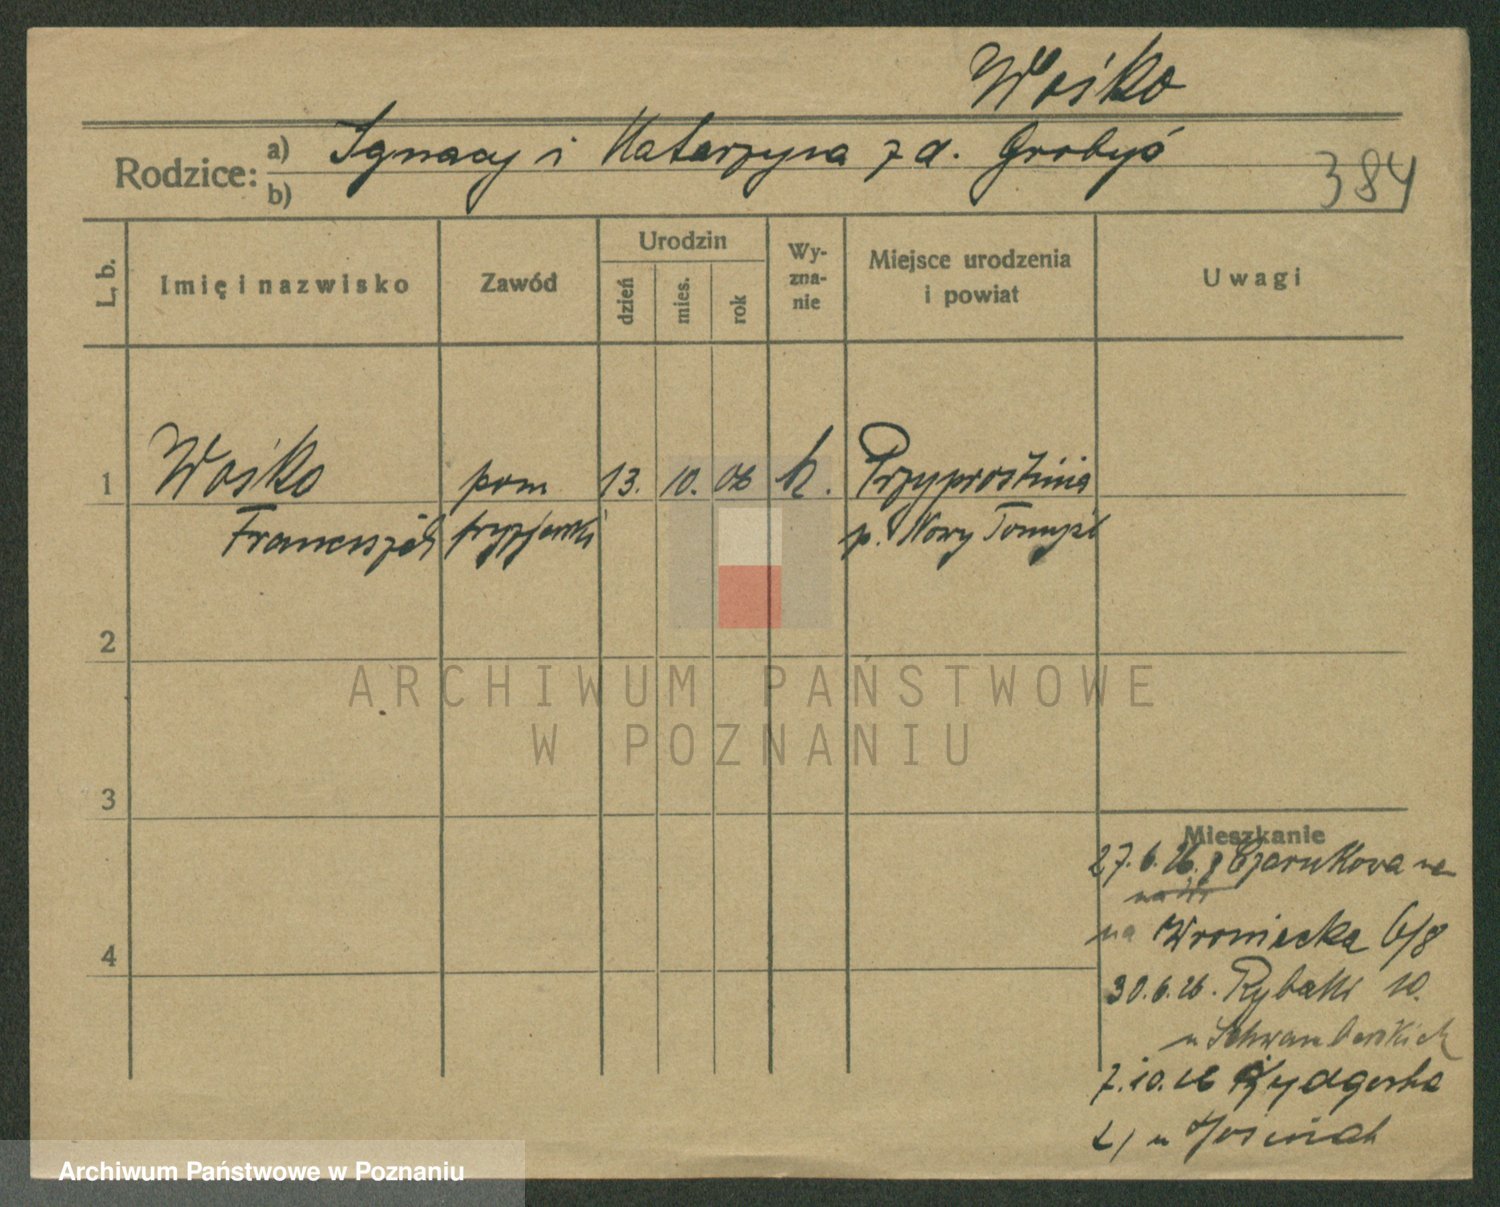 Wośko
Rodzice: a) Ignacy i Katarzyna z d. Grobyś
b)
384
L. b.
Imię i nazwisko
Zawód
Urodzin
dzień
mies.
rok
Wy-
zna-
nie
Miejsce urodzenia
i powiat
Uwagi
1 Wośko pom 13. 10. 08 k. Przyprostinia
Franciszek fryzjerski p. Nowy Tomyśl
2
3
4
Mieszkanie
27.6.26. z Czarnkowa
na Wroniecka 6/8
30.6.26. Rybaki 10.
u
7.10.26 Bydgoska
u
ARCHIWUM PAŃSTWOWE
W POZNANIU
Archiwum Państwowe w Poznaniu